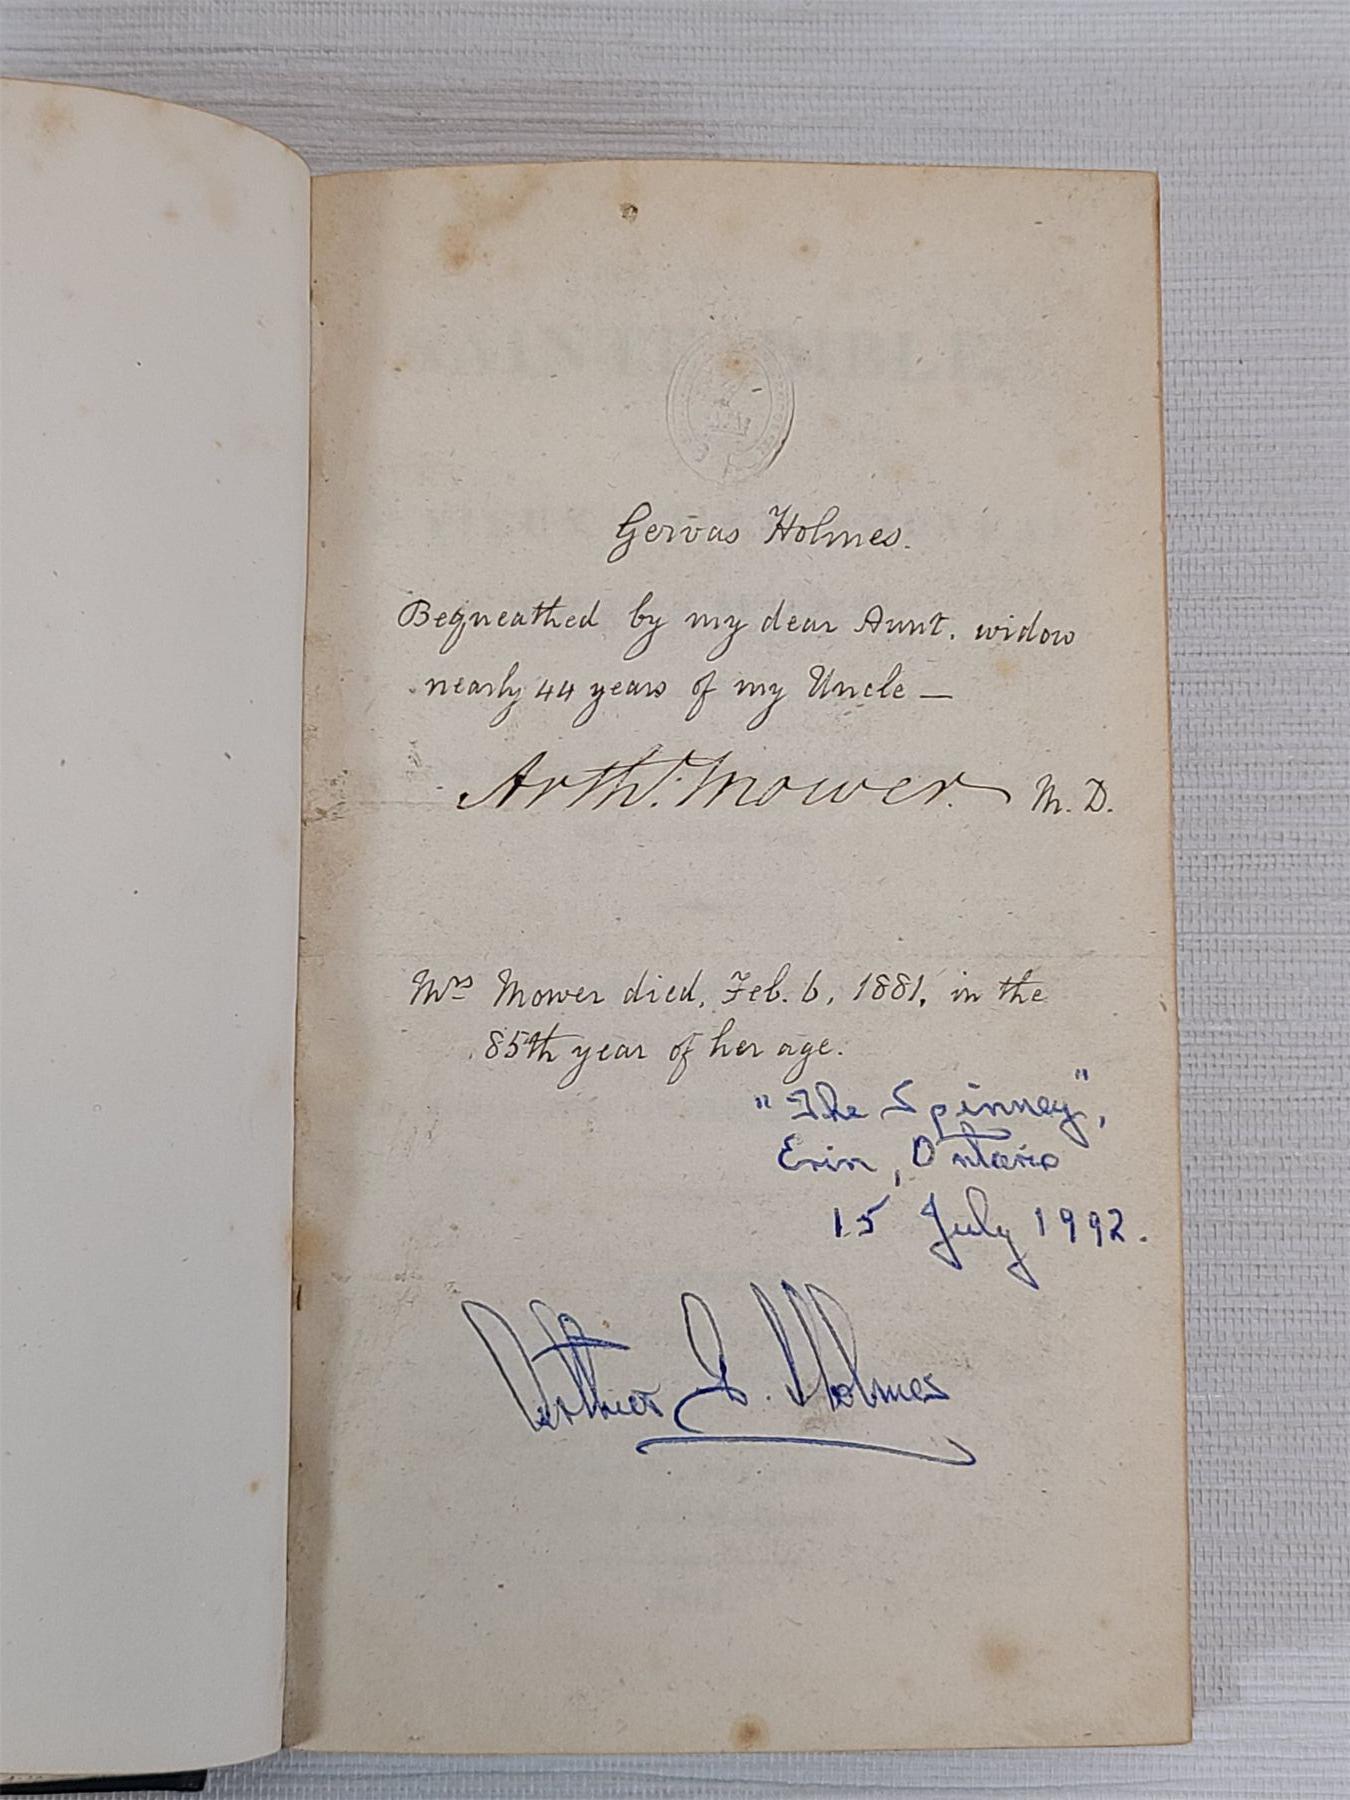 Gervas Holmes.
Bequeathed by my dear Aunt, widow
nearly 44 years of my Uncle —
Arthr. Mower. M.D.
Mrs Mower died, Feb. 6, 1881, in the
85th year of her age.
"The Spinney",
Erin, Ontario
15 July 1992.
Holmes